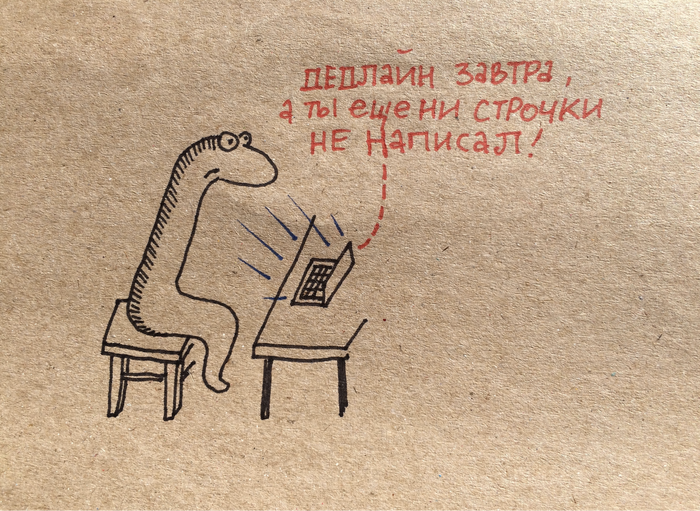 ДЕДЛАЙН ЗАВТРА,
А ТЫ ЕЩЕ НИ СТРОЧКИ
НЕ НАПИСАЛ!